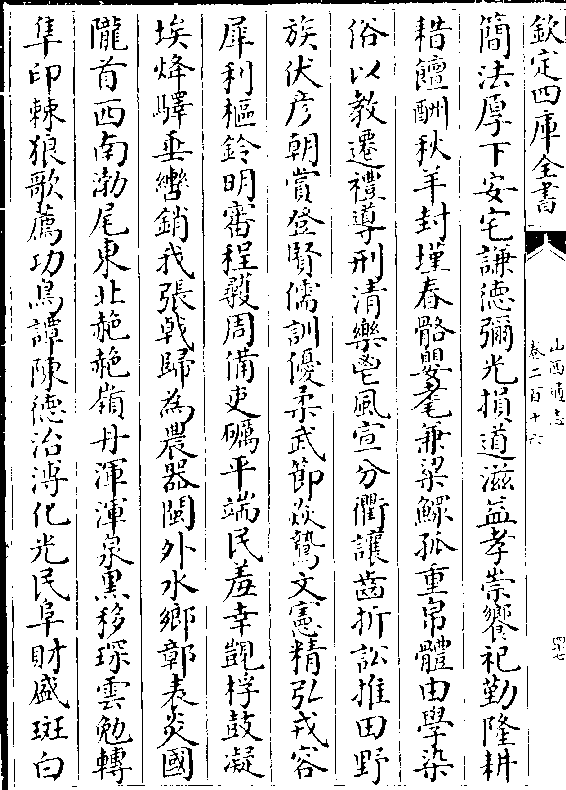 欽定四庫全書
山西通志
卷二百十六
四十七
簡法厚下安宅謙德彌光損道滋益孝崇饗祀勤隆耕
耤饎酬秋羊封墐春骼嬰耄兼梁鰥孤重帛體由學染
俗以教遷禮導刑清樂鬯風宣分衢讓齒折訟推田野
族伏彦朝賞登賢儒訓優柔武節焱鷙文憲精弘戎容
犀利樞鈴明審程䂓周備吏礪平端民羞幸覬桴鼓凝
埃烽驛垂轡銷我張戟歸為農器閩外水鄉鄣表炎國
隴首西南渤尾東北赩赩嶺丹渾渾泉黒移琛雲勉轉
隼印棘狼歌薦功鳥譯陳德治溥化光民阜財盛斑白